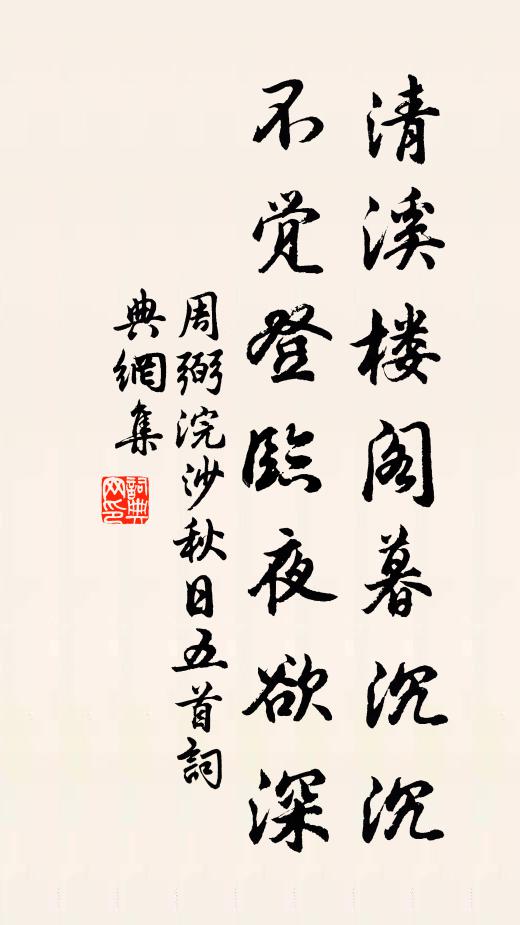 清溪楼阁暮沉沉
不觉登臨夜欲深
周弼浣沙秋日五首詞
典網集
詞典
网印